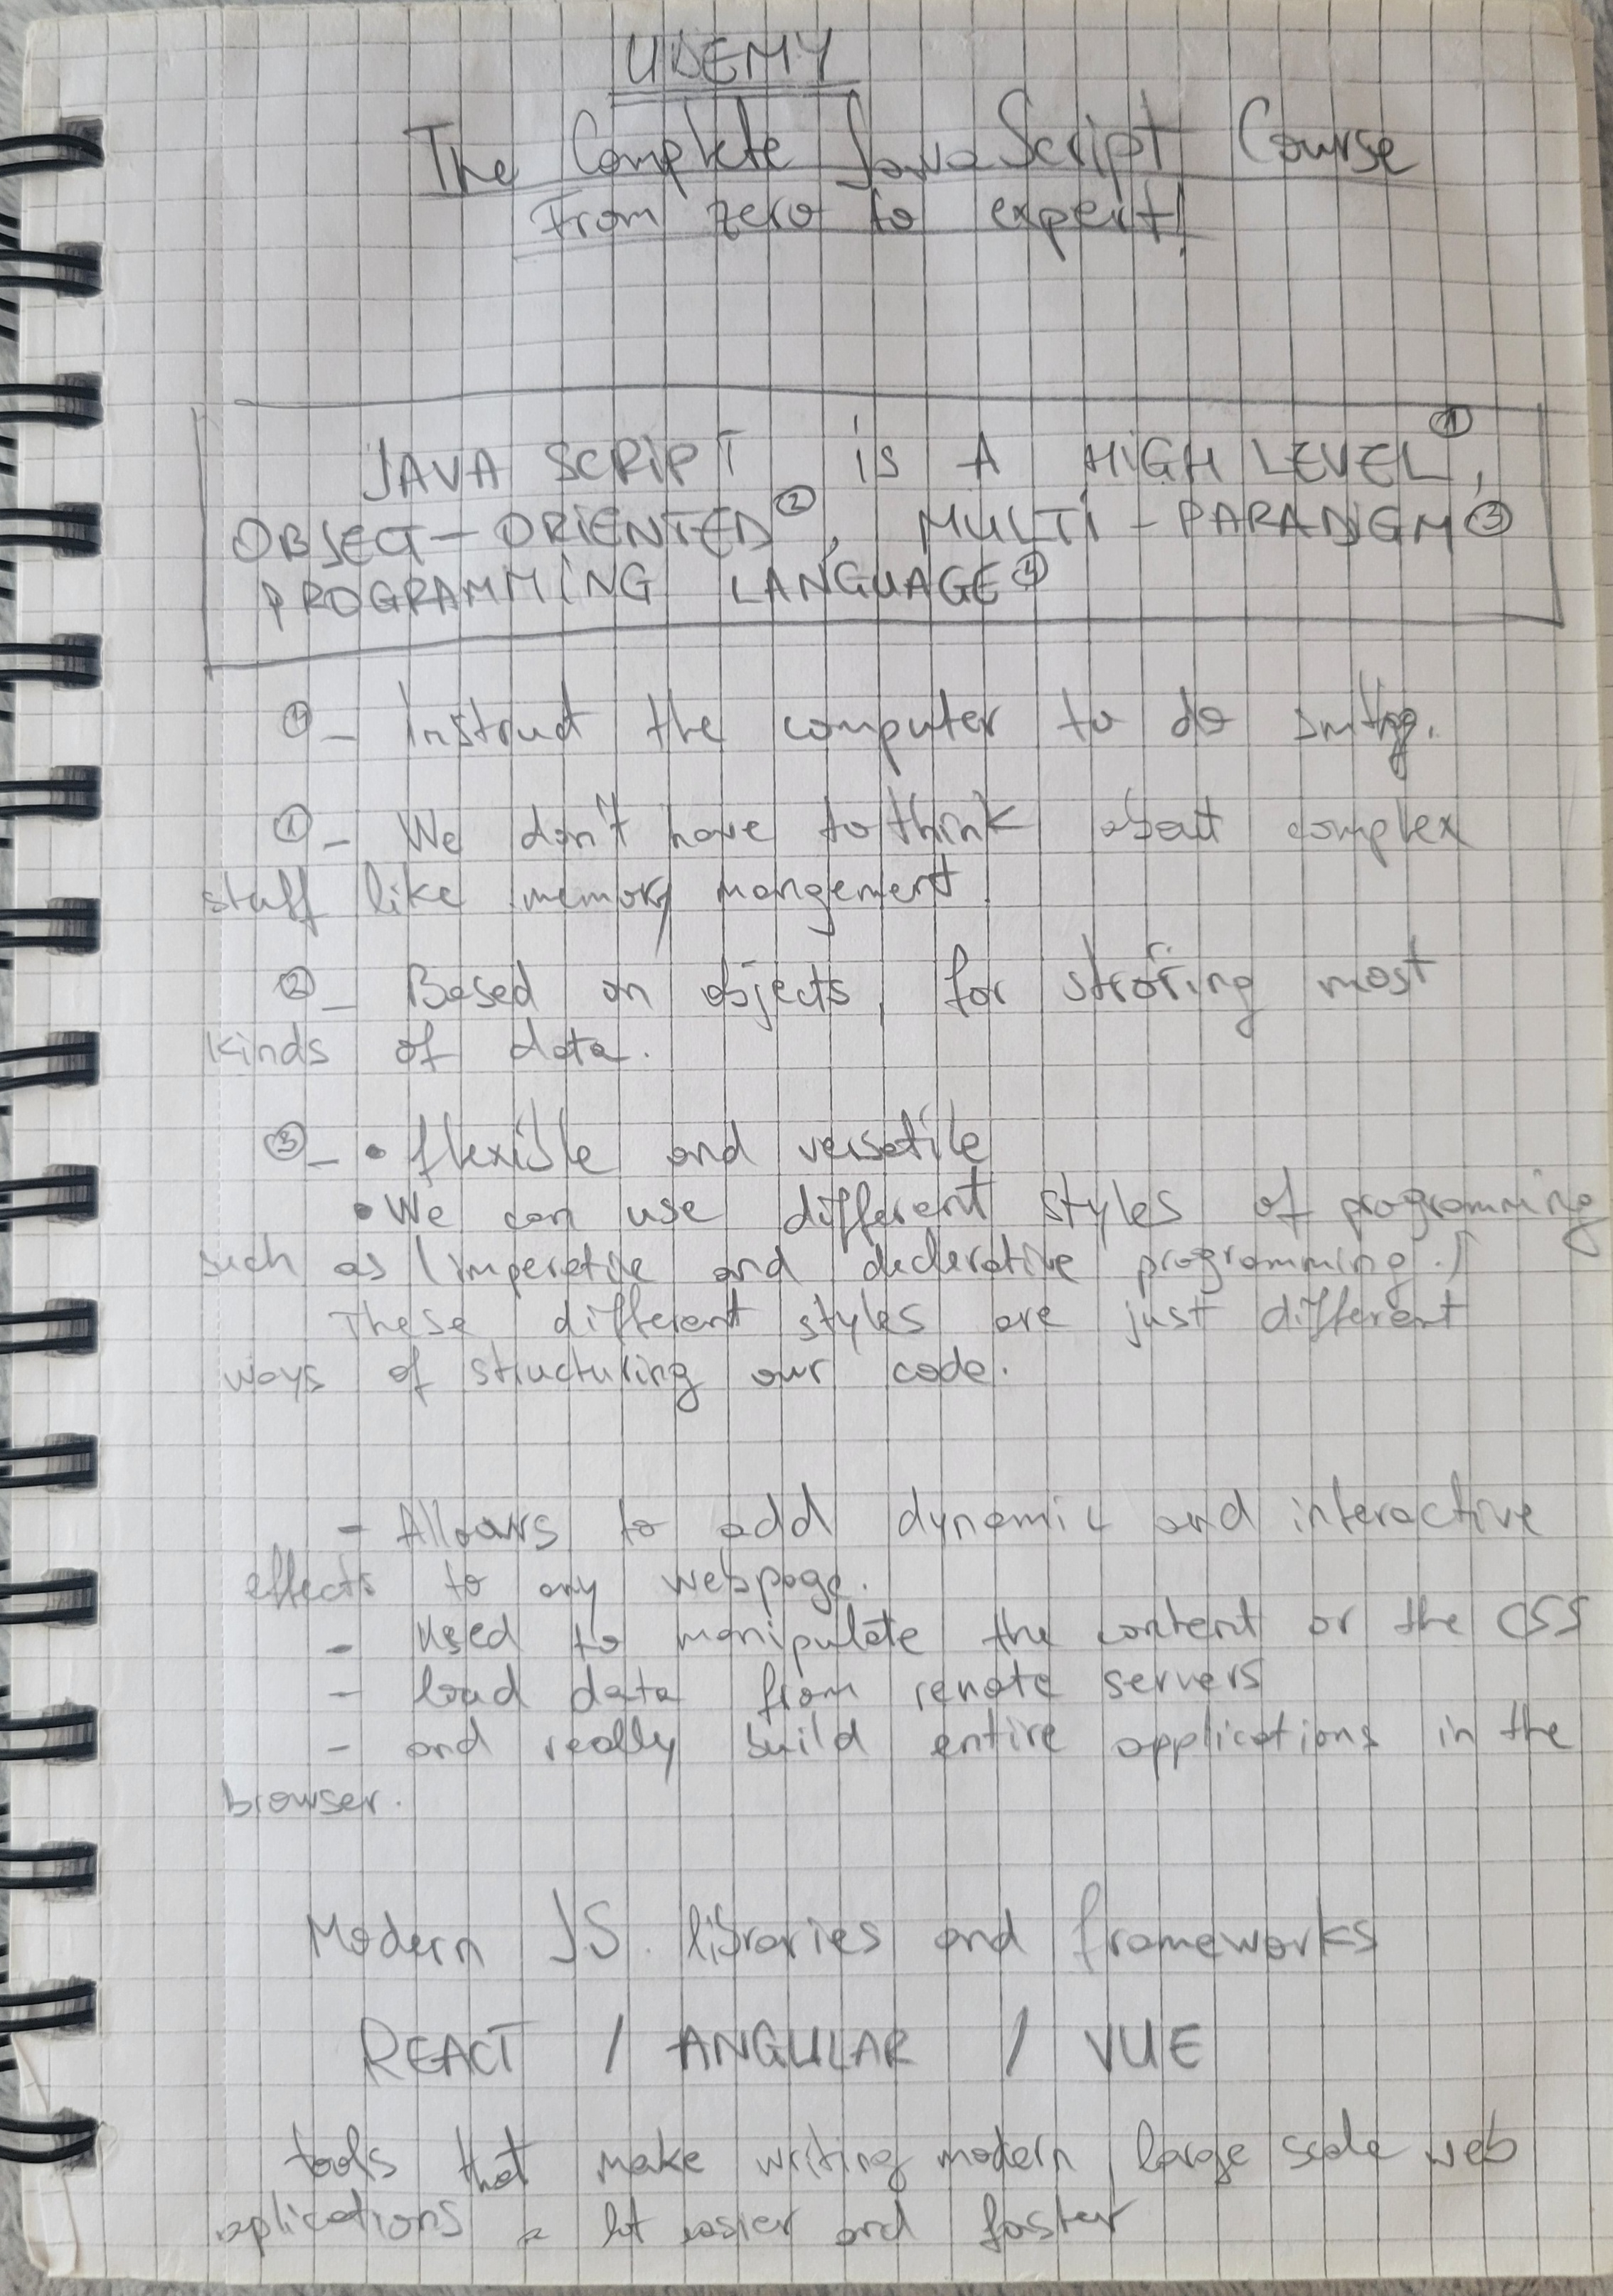 UDEMY
The Complete JavaScript Course
From zero to expert!
JAVA SCRiPT is A HiGH LEVEL ①,
OBJECT-ORiENTED ②, MULTi-PARADiGM ③
PROGRAMMiNG LANGUAGE ④
④- Instruct the computer to do
①- We don't have to think about complex
stuff like memory mangement.
②- Based on objects, for stroring most
kinds of data.
③- • flexible and versatile
• We can use different styles of programming
such as (imperative and declerative programming.)
These different styles are just different
ways of structuring our code.
- Allows to add dynamic and interactive
effects to any webpage.
- used to manipulate the content or the CSS
- load data from remote servers
- and really build entire applications in the
browser.
Modern JS. libraries and frameworks
REACT / ANGULAR / VUE
tools that make writing modern large scale web
aplications a lot easier and faster